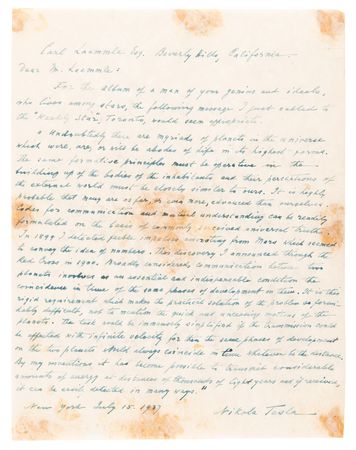 Carl Laemmle Esq. Beverly Hills, California. -
Dear Mr. Laemmle:
For the album of a man of your genius and ideals,
who lives among stars, the following message I just cabled to
the "Weekly Star" Toronto, would seem appropriate.
" Undoubtedly there are myriads of planets in the universe
which were, are, or will be abodes of life in its highest
the same formative principles must be operative in the
building up of the bodies of the inhabitants and their perceptions of
the external world must be closely similar to ours. It is highly
probable that many are as far, or even more, advanced than ourselves.
Codes for communication and mutual understanding can be readily
formulated on the basis of commonly perceived universal truths.
In 1899 I detected public impulses emanating from Mars which seemed
to convey the idea of numbers. This discovery I announced through the
Red Cross in 1900. Broadly considered, communication between two
planets involves as an essential and indispensable condition the
coincidence in time of the same phases of development on them. It is this
rigid requirement which makes the practical solution of the problem so formi-
dably difficult, not to mention the quick and unceasing motions of the
planets. The task would be immensely simplified if the transmission could
be effected with infinite velocity for then the same phases of development
on the two planets would always coincide in time whatever be the distance.
By my inventions it has become possible to transmit considerable
amounts of energy at distances of thousands of light years and if received,
it can be easily detected in many ways."
New York July 15. 1937 Nikola Tesla